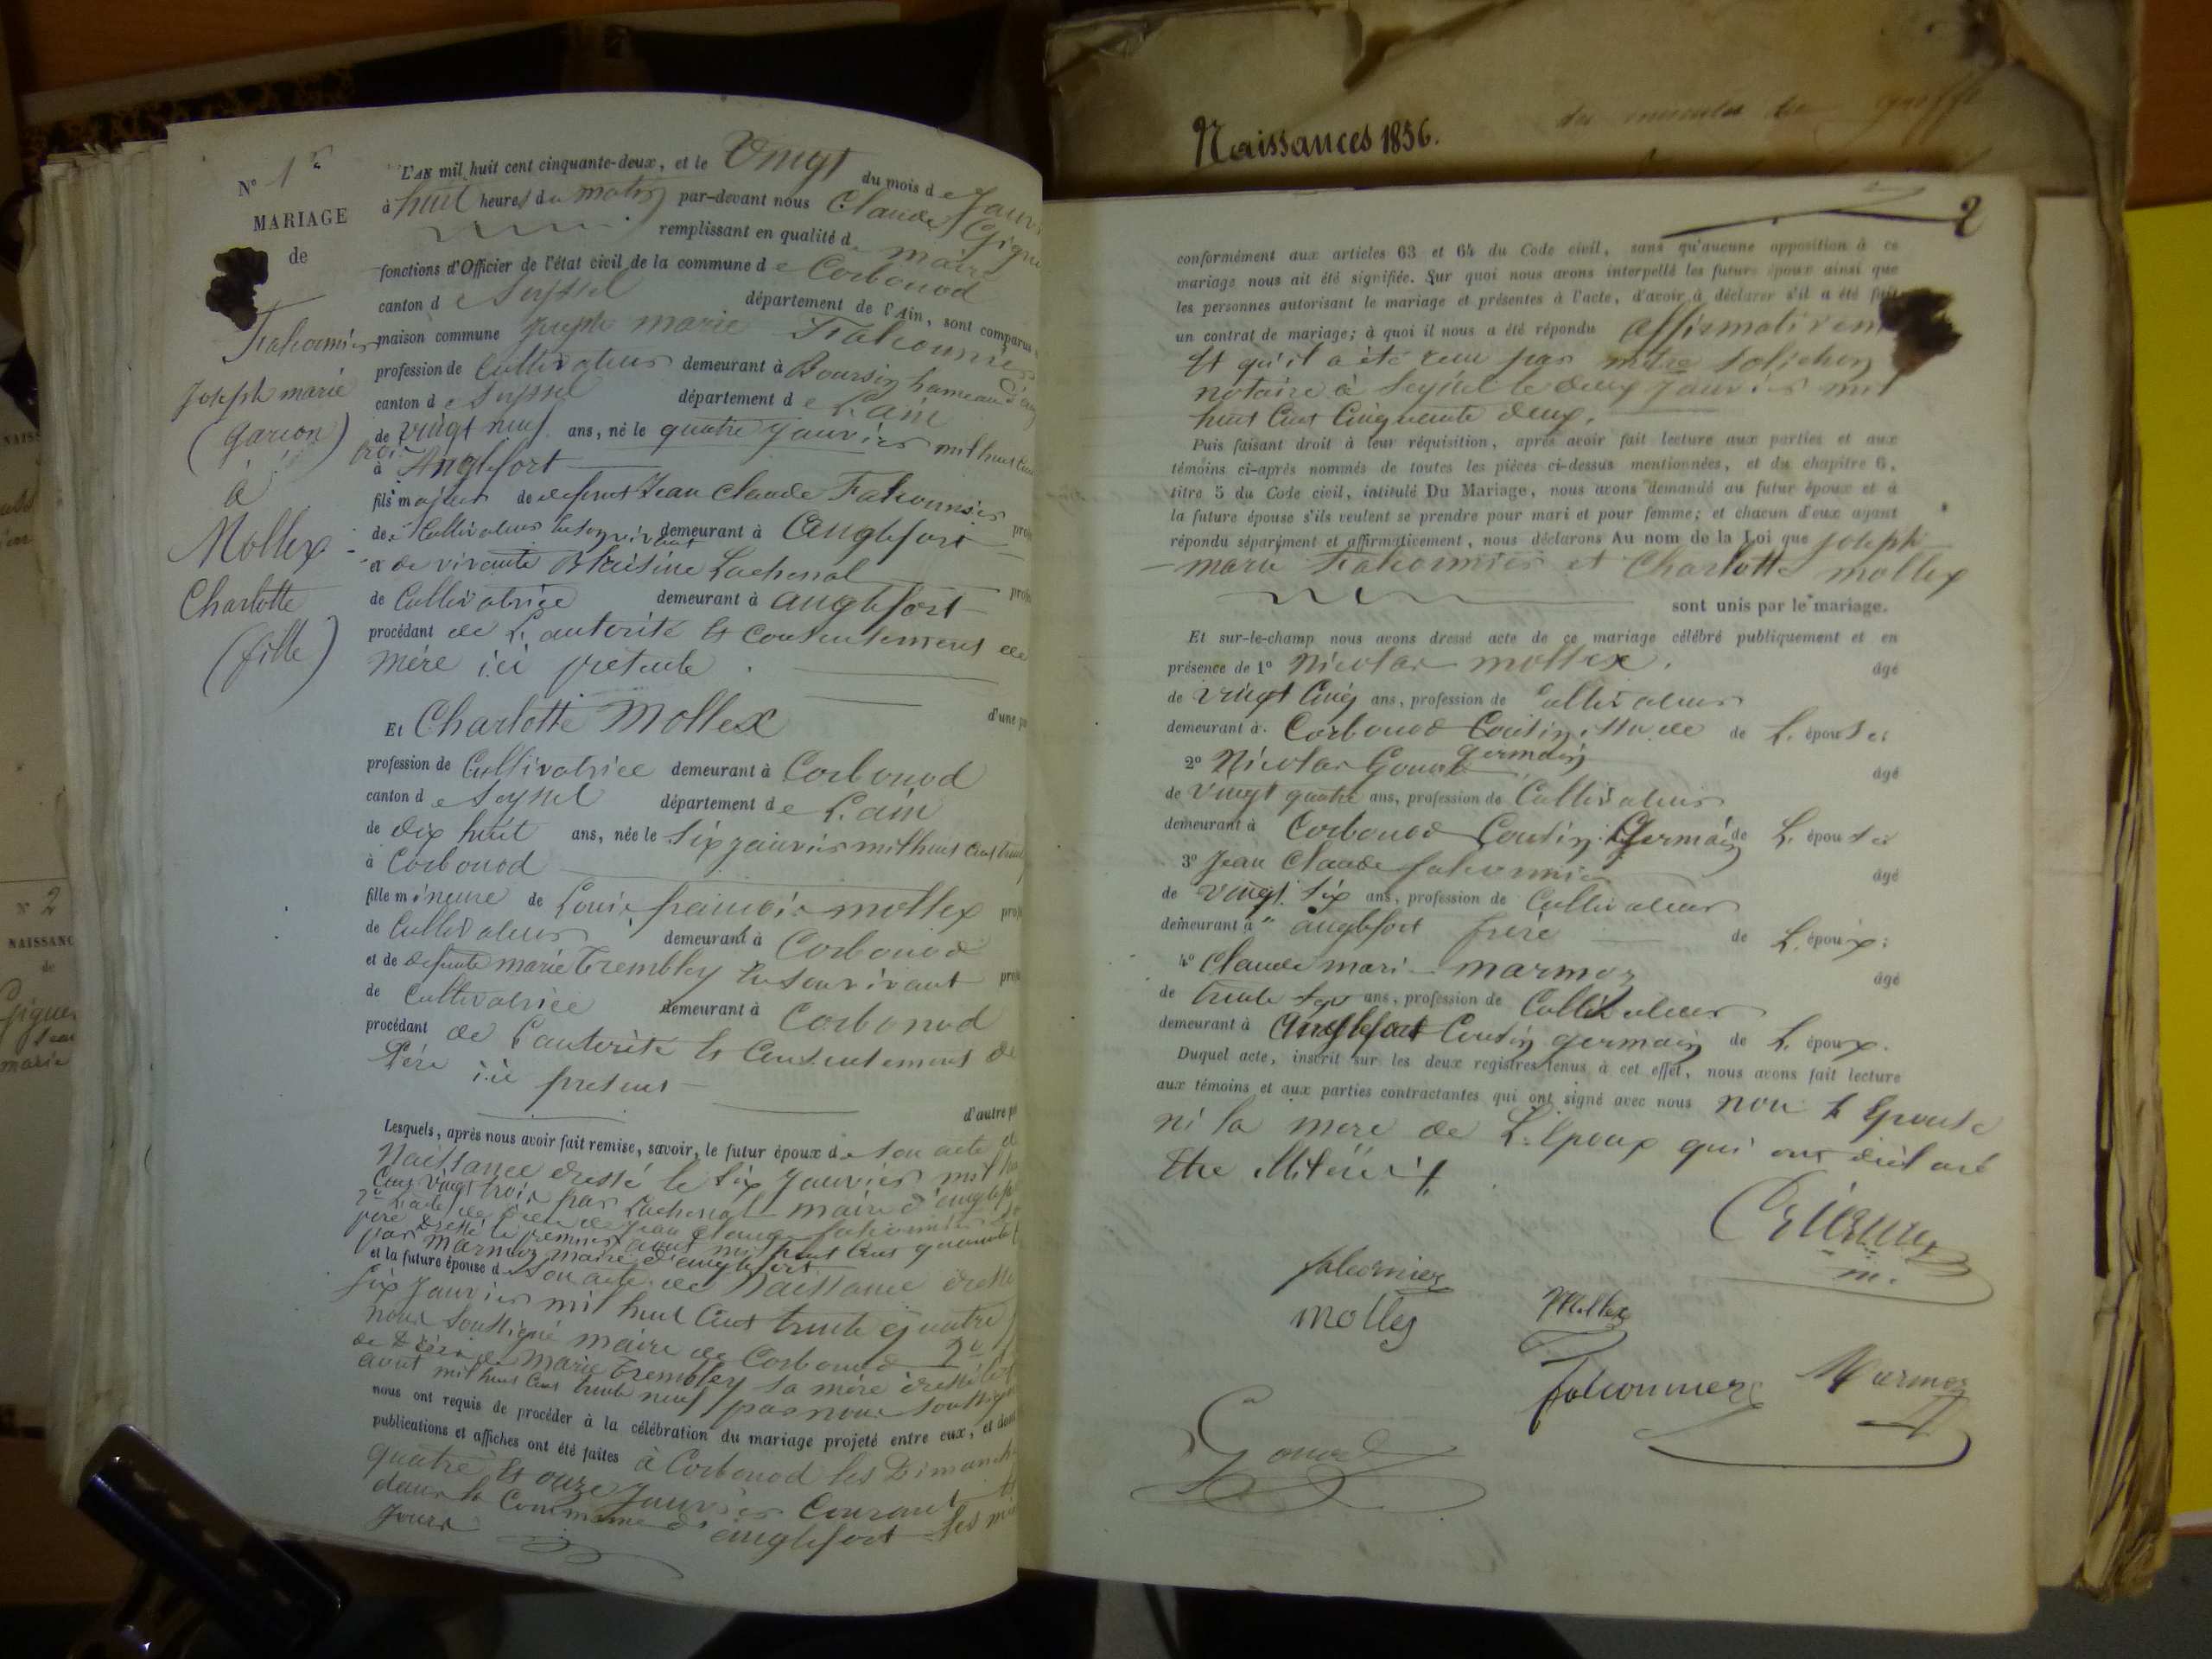 N° 1er
MARIAGE
de
Falconnier
Joseph marie
(garçon)
à
Mollex
Charlotte
(fille)
L'AN mil huit cent cinquante-deux, et le Vingt du mois de Janv
à huit heures du matin par-devant nous Claude Gigue
remplissant en qualité de maire
fonctions d'Officier de l'état civil de la commune de Corbonod
canton de Seyssel département de l'Ain, sont comparus
maison commune Joseph marie Falconnier
profession de Cultivateur demeurant à Boursin hameau d'ang
canton de Seyssel département de L'ain
de vingt neuf ans, né le quatre janvier mil huit cent
à Anglefort
fils majeur de defunt Jean Claude Falconnier
de Cultivateur de son vivant demeurant à Anglefort
et de vivante Blaisine Lachenal
de Cultivatrice demeurant à anglefort
procédant de L'autorité et Consentement de
mère ici presente
Et Charlotte Mollex d'une p
profession de Cultivatrice demeurant à Corbonod
canton de Seyssel département de L'ain
de dix huit ans, née le six janvier mil huit cent trent
à Corbonod
fille mineure de Louis françois mollex
de Cultivateur demeurant à Corbonod
et de defunte marie Trembley de son vivant
de Cultivatrice demeurant à Corbonod
procédant de L'autorité et Consentement de
Père ici present
d'autre p
Lesquels, après nous avoir fait remise, savoir, le futur époux de son acte de
Naissance dressé le six janvier mil hu
Cent vingt trois par Lachenal maire d'anglef
2° L'acte de décès de Jean Claude falconnier
père dressé le premier août mil huit cent quarante
par Marmoz maire d'anglefort
et la future épouse de son acte de Naissance dressé
six janvier mil huit Cent trente quatre
nous soussigné maire de Corbonod 2°
de Décès de Marie Trembley sa mère dressé le
août mil huit Cent trente neuf par nous soussigné
nous ont requis de procéder à la célébration du mariage projeté entre eux, et dont
publications et affiches ont été faites à Corbonod les Dimanch
quatre et onze janvier Courant et
dans la Commune d'anglefort les mê
jours
Naissances 1856.
2
conformément aux articles 63 et 64 du Code civil, sans qu'aucune opposition à ce
mariage nous ait été signifiée. Sur quoi nous avons interpellé les futurs époux ainsi que
les personnes autorisant le mariage et présentes à l'acte, d'avoir à déclarer s'il a été fait
un contrat de mariage; à quoi il nous a été répondu affirmativem
Et qu'il a été reçu par mtre Solichon
notaire à Seyssel le deux janvier mil
huit Cent Cinquante deux.
Puis faisant droit à leur réquisition, après avoir fait lecture aux parties et aux
témoins ci-après nommés de toutes les pièces ci-dessus mentionnées, et du chapitre 6,
titre 5 du Code civil, intitulé Du Mariage, nous avons demandé au futur époux et à
la future épouse s'ils veulent se prendre pour mari et pour femme; et chacun d'eux ayant
répondu séparément et affirmativement, nous déclarons Au nom de la Loi que Joseph
marie Falconnier et Charlotte mollex
sont unis par le mariage.
Et sur-le-champ nous avons dressé acte de ce mariage célébré publiquement et en
présence de 1° Nicolas mollex. âgé
de vingt Cinq ans, profession de Cultivateur
demeurant à Corbonod Cousin de L'épouse;
germain
2° Nicolas Gonod âgé
de vingt quatre ans, profession de Cultivateur
demeurant à Corbonod Cousin Germain de L'épouse
3° Jean Claude falconnier âgé
de vingt six ans, profession de Cultivateur
demeurant à anglefort frère de L'époux;
4° Claude mari marmoz âgé
de trente sept ans, profession de Cultivateur
demeurant à Anglefort Cousin germain de L'époux.
Duquel acte, inscrit sur les deux registres tenus à cet effet, nous avons fait lecture
aux témoins et aux parties contractantes qui ont signé avec nous non L'Epouse
ni la mere de L'Epoux qui ont déclaré
Etre illitéré
m.
falconnier
Mollex
Mollex
falconnier
Marmoz
Gonod
N° 2
NAISSANC
de
Gigue
marie